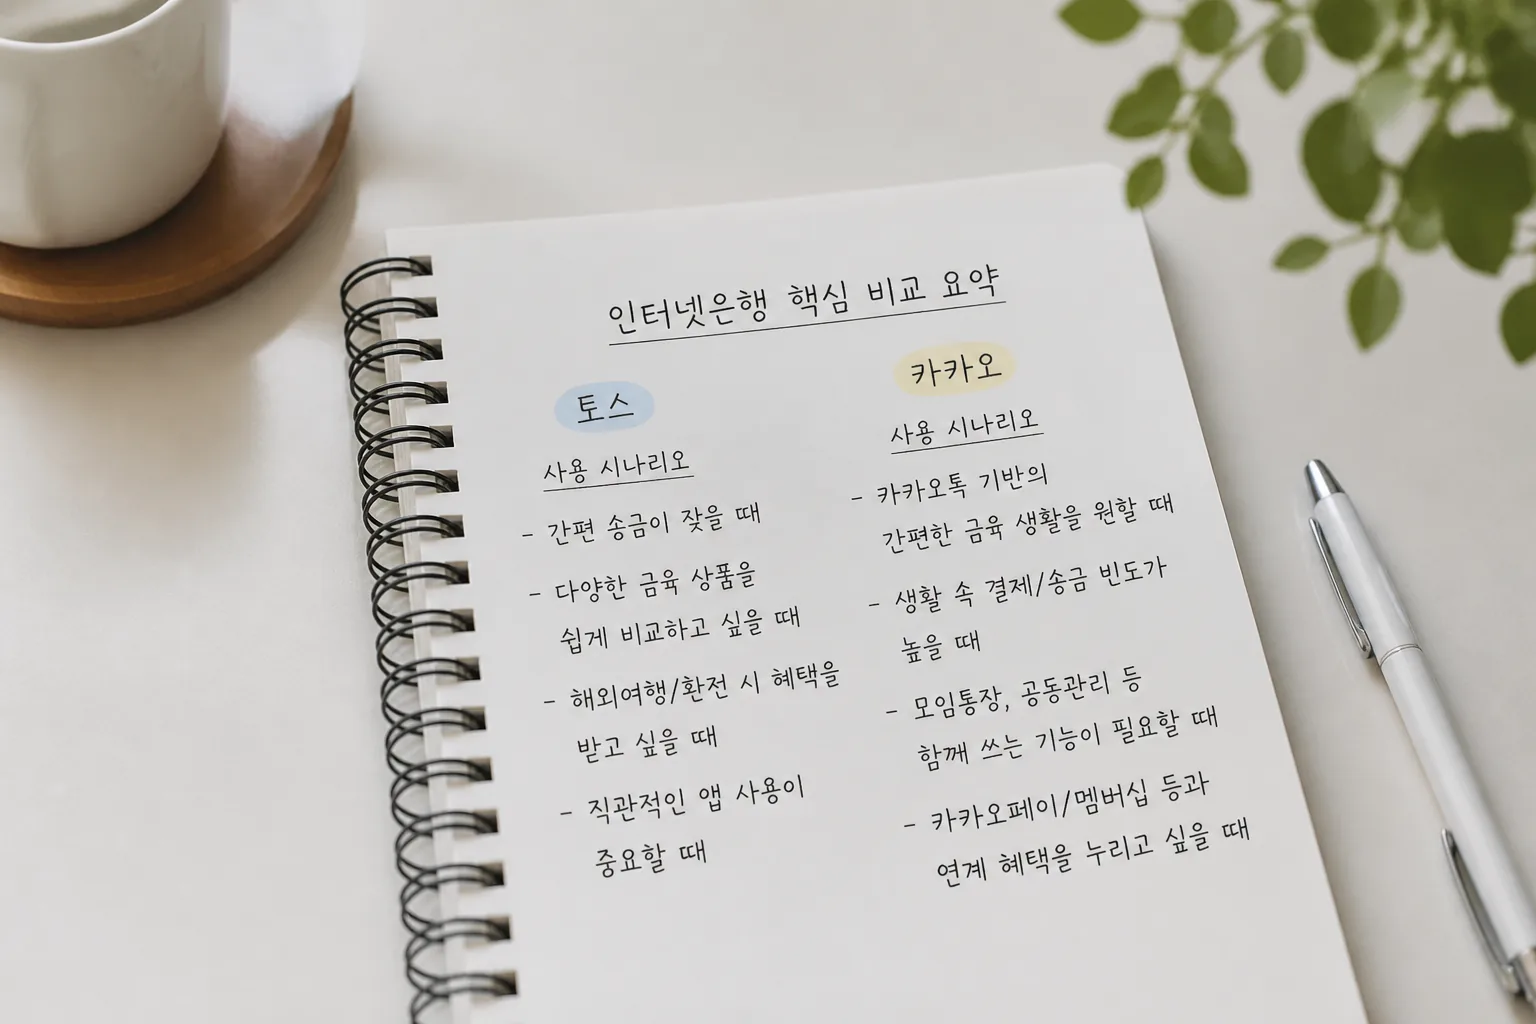 인터넷은행 핵심 비교 요약
토스
사용 시나리오
- 간편 송금이 잦을 때
- 다양한 금육 상품을
쉽게 비교하고 싶을 때
- 해외여행/환전 시 혜택을
받고 싶을 때
- 직관적인 앱 사용이
중요할 때
카카오
사용 시나리오
- 카카오톡 기반의
간편한 금육 생활을 원할 때
- 생활 속 결제/송금 빈도가
높을 때
- 모임통장, 공동관리 등
함께 쓰는 기능이 필요할 때
- 카카오페이/멤버십 등과
연계 혜택을 누리고 싶을 때